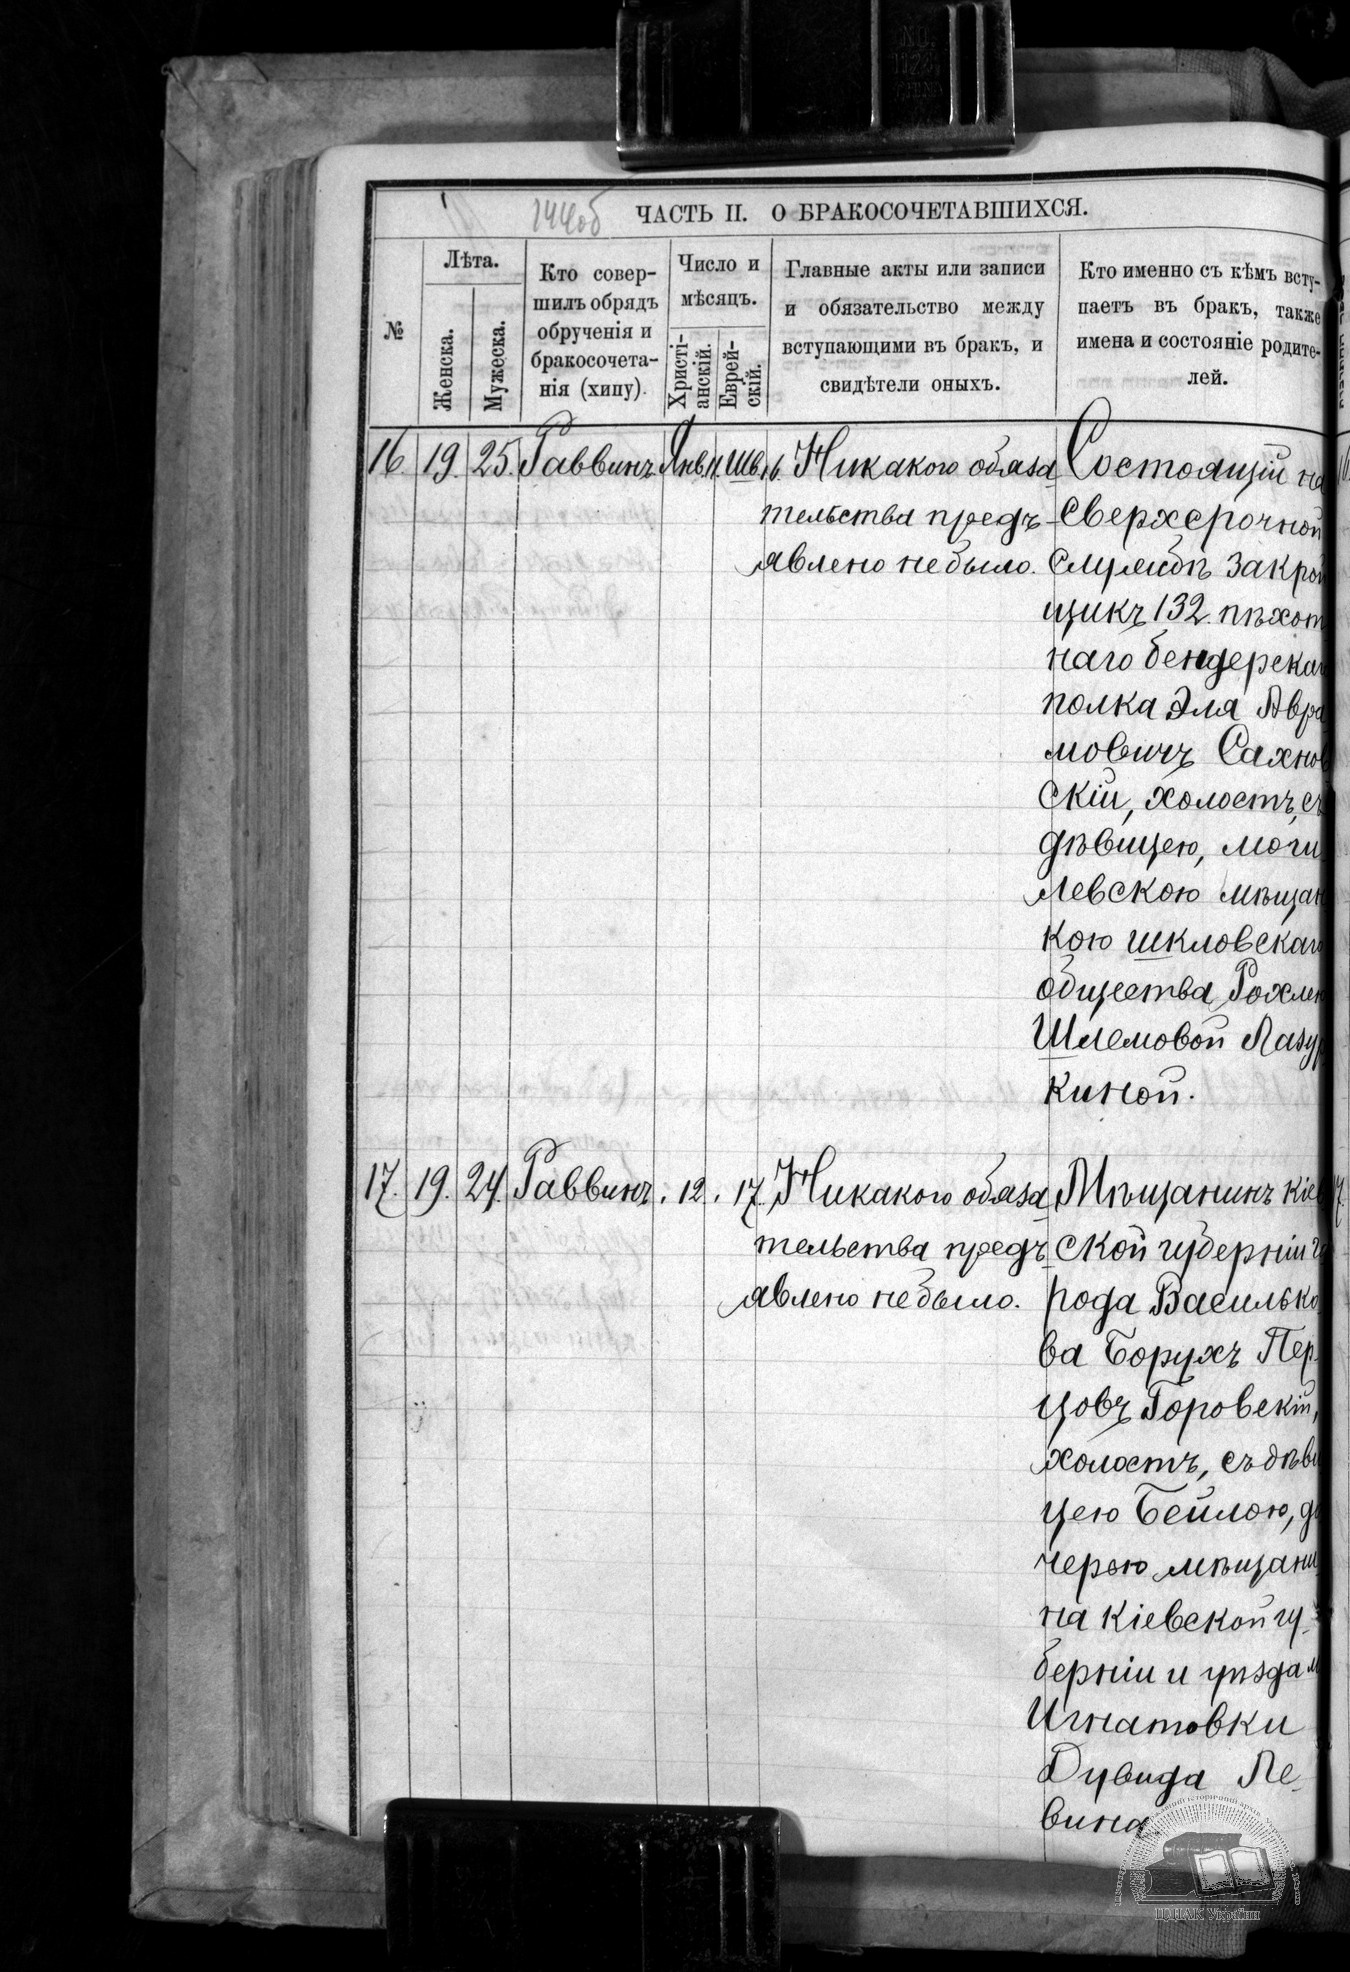 144об
ЧАСТЬ II. О БРАКОСОЧЕТАВШИХСЯ.
№
Лѣта.
Женска.
Мужеска.
Кто совер-
шилъ обрядъ
обрученія и
бракосочета-
нія (хипу).
Число и
мѣсяцъ.
Христі-
анскій.
Еврей-
скій.
Главные акты или записи
и обязательство между
вступающими въ бракъ, и
свидѣтели оныхъ.
Кто именно съ кѣмъ всту-
паетъ въ бракъ, также
имена и состояніе родите-
лей.
16. 19. 25. Раввинъ Янв. 11. Шв. 16. Никакого обяза
тельства предъ
явлено не было.
Состоящій на
сверхсрочной
службѣ закрой
щикъ 132 пѣхот
наго бендерскаго
полка Эля Авра
мовичъ Сахнов
скій, холостъ, съ
дѣвицею, моги
левскою мѣщан
кою шкловскаго
общества Рохлею
Шлемовой Лазур
киной.
17. 19. 24. Раввинъ. 12. 17. Никакого обяза
тельства предъ
явлено не было.
Мѣщанинъ Кіев
ской губерніи го
рода Василько
ва Борухъ Пер
цовъ Горовскій,
холостъ, съ дѣви
цею Бейлою, до
черью мѣщани
на Кіевской гу
берніи и уѣзда м
Игнатовки
Дувида Ле
вина
ЦДІАК України